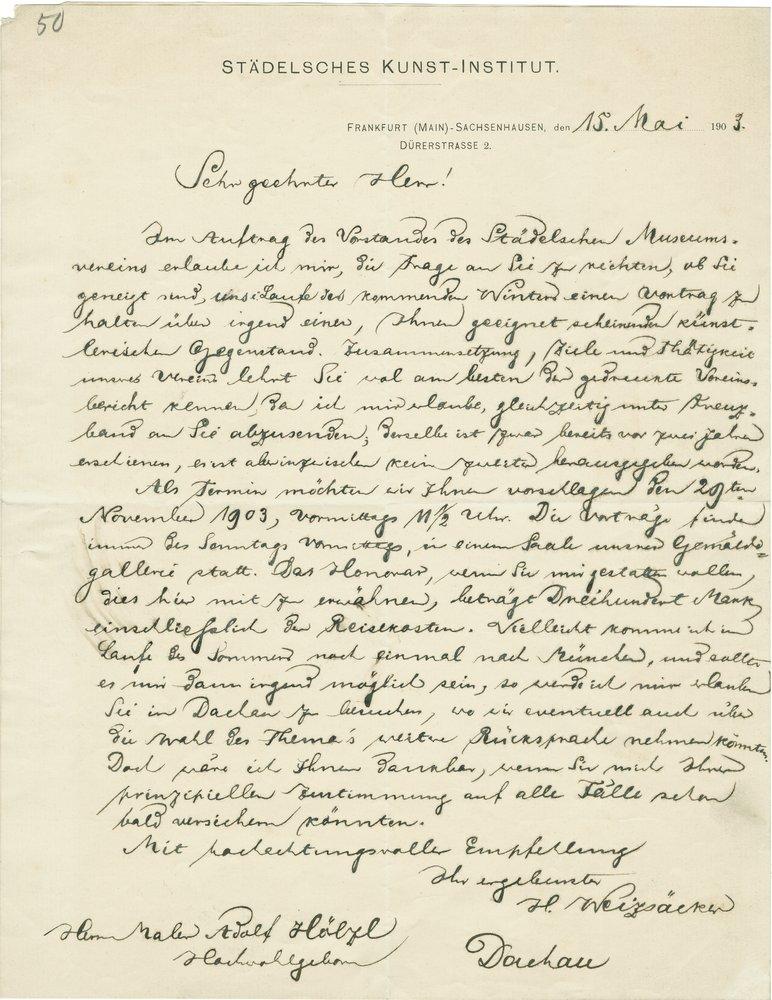 50
STÄDELSCHES KUNST-INSTITUT.
FRANKFURT (MAIN)-SACHSENHAUSEN, den 15. Mai 1903.
DÜRERSTRASSE 2.
Sehr geehrter Herr!
Im Auftrag des Vorstandes des Städelschen Museums-
vereins erlaube ich mir, die Frage an Sie zu richten, ob Sie
geneigt sind, uns i. Laufe des kommenden Winters einen Vortrag zu
halten über irgend einen, Ihnen geeignet scheinenden künst-
lerischen Gegenstand. Zusammensetzung, Ziele und Thätigkeit
unsres Vereins lehrt Sie wol am besten der gedruckte Vereins-
bericht kennen, den ich mir erlaube, gleichzeitig unter Kreuz-
band an Sie abzusenden; derselbe ist zwar bereits vor zwei Jahren
erschienen, es ist aber inzwischen kein zweiter herausgegeben worden.
Als Termin möchten wir Ihnen vorschlagen den 29ten
November 1903, Vormittags 11 1/2 Uhr. Die Vorträge finden
immer des Sonntags Vormittags, in einem Saale unsrer Gemälde-
gallerie statt. Das Honorar, wenn Sie mir gestatten wollen,
dies hier mit zu erwähnen, beträgt Dreihundert Mark,
einschliesslich der Reisekosten. Vielleicht komme ich im
Laufe des Sommers noch einmal nach München, und sollte
es mir dann irgend möglich sein, so werde ich mir erlauben
Sie in Dachau zu besuchen, wo wir eventuell auch über
die Wahl des Thema's weitere Rücksprache nehmen könnten.
Doch wäre ich Ihnen dankbar, wenn Sie mich Ihrer
prinzipiellen Zustimmung auf alle Fälle schon
bald versichern könnten.
Mit hochachtungsvoller Empfehlung
Ihr ergebenster
H. Weizsäcker
Herrn Maler Adolf Hölzl
Hochwohlgeboren
Dachau